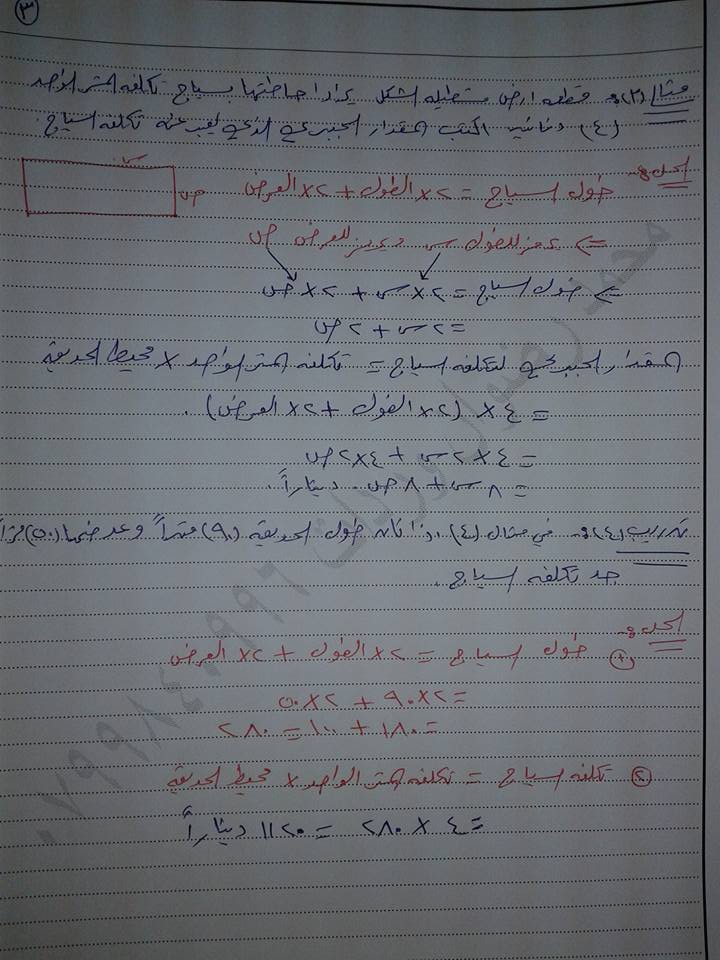 ٣
مثال (٣): قطعة ارض مستطيلة الشكل يراد احاطتها بسياج تكلفة المتر الواحد
(٤) دنانير اكتب المقدار الجبري الذي يعبر عنه تكلفة السياج.
الحل:
طول السياج = ٢×الطول + ٢×العرض
س
ص
=> نرمز للطول س ونرمز للعرض ص
=> طول السياج = ٢×س + ٢×ص
= ٢س + ٢ص
المقدار الجبري لتكلفة السياج = تكلفة المتر الواحد × محيط الحديقة
= ٤ × (٢×الطول + ٢×العرض).
= ٤×٢س + ٤×٢ص
= ٨س + ٨ص. ديناراً.
تدريب (٤): في مثال (٤) اذا كان طول الحديقة (٩٠) متراً وعرضها (٥٠) متراً
جد تكلفة السياج.
الحل:
١) طول السياج = ٢×الطول + ٢×العرض
= ٢×٩٠ + ٢×٥٠
= ١٨٠ + ١٠٠ = ٢٨٠
٢) تكلفة السياج = تكلفة المتر الواحد × محيط الحديقة
= ٤ × ٢٨٠ = ١١٢٠ ديناراً